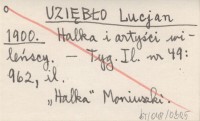 UZIĘBŁO Lucjan
1900. Halka i artyści wi-
leńscy. – Tyg. Il. nr 49:
962, il.
"Halka" Moniuszki.